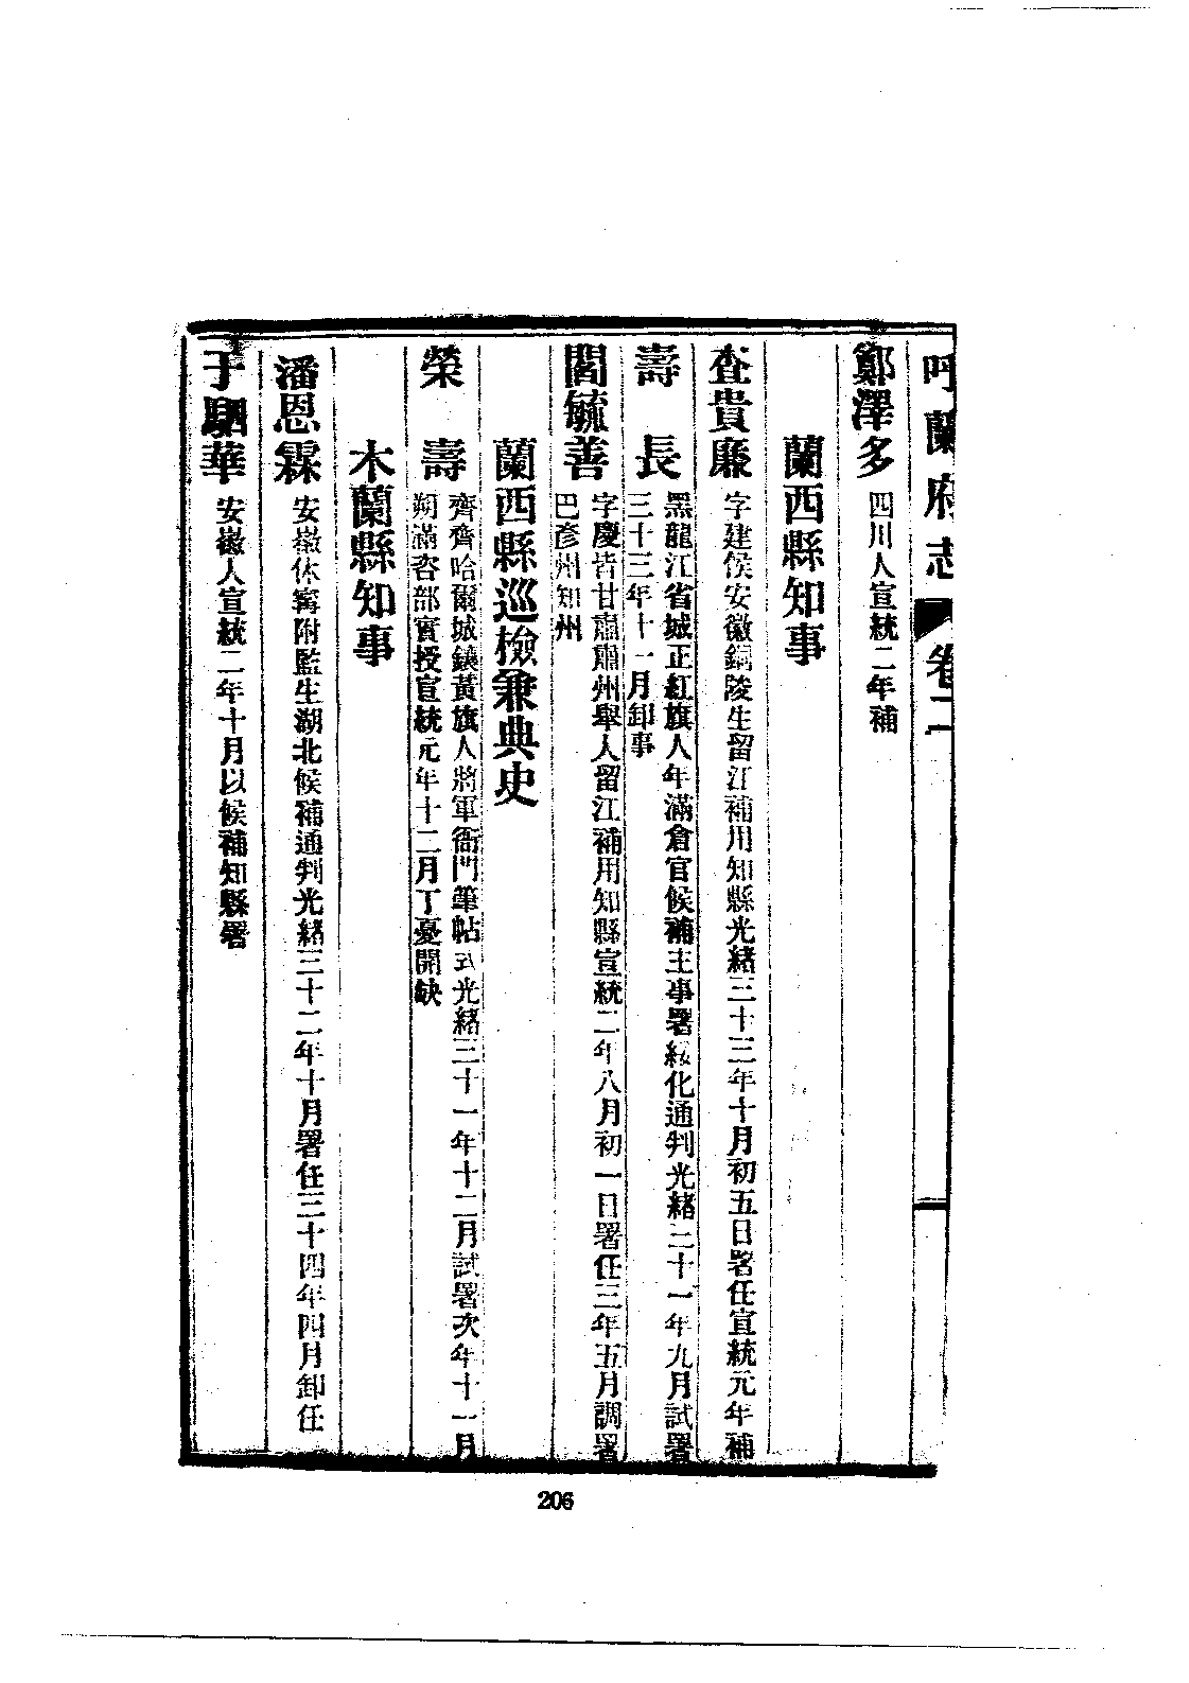 呼蘭府志 卷二
鄭澤多 四川人宣統二年補
蘭西縣知事
查貴廉 字建侯安徽銅陵生留江補用知縣光緒三十三年十月初五日署任宣統元年補
壽 長 黑龍江省城正紅旗人年滿倉官候補主事署綏化通判光緒三十一年九月試署
三十三年十一月卸事
閻毓善 字慶皆甘肅肅州舉人留江補用知縣宣統二年八月初一日署任三年五月調署
巴彥州知州
蘭西縣巡檢兼典史
榮 壽 齊齊哈爾城鑲黃旗人將軍衙門筆帖式光緒三十一年十二月試署次年十一月
期滿咨部實授宣統元年十二月丁憂開缺
木蘭縣知事
潘恩霖 安徽休寧附監生湖北候補通判光緒三十二年十月署任三十四年四月卸任
于駟華 安徽人宣統二年十月以候補知縣署
206